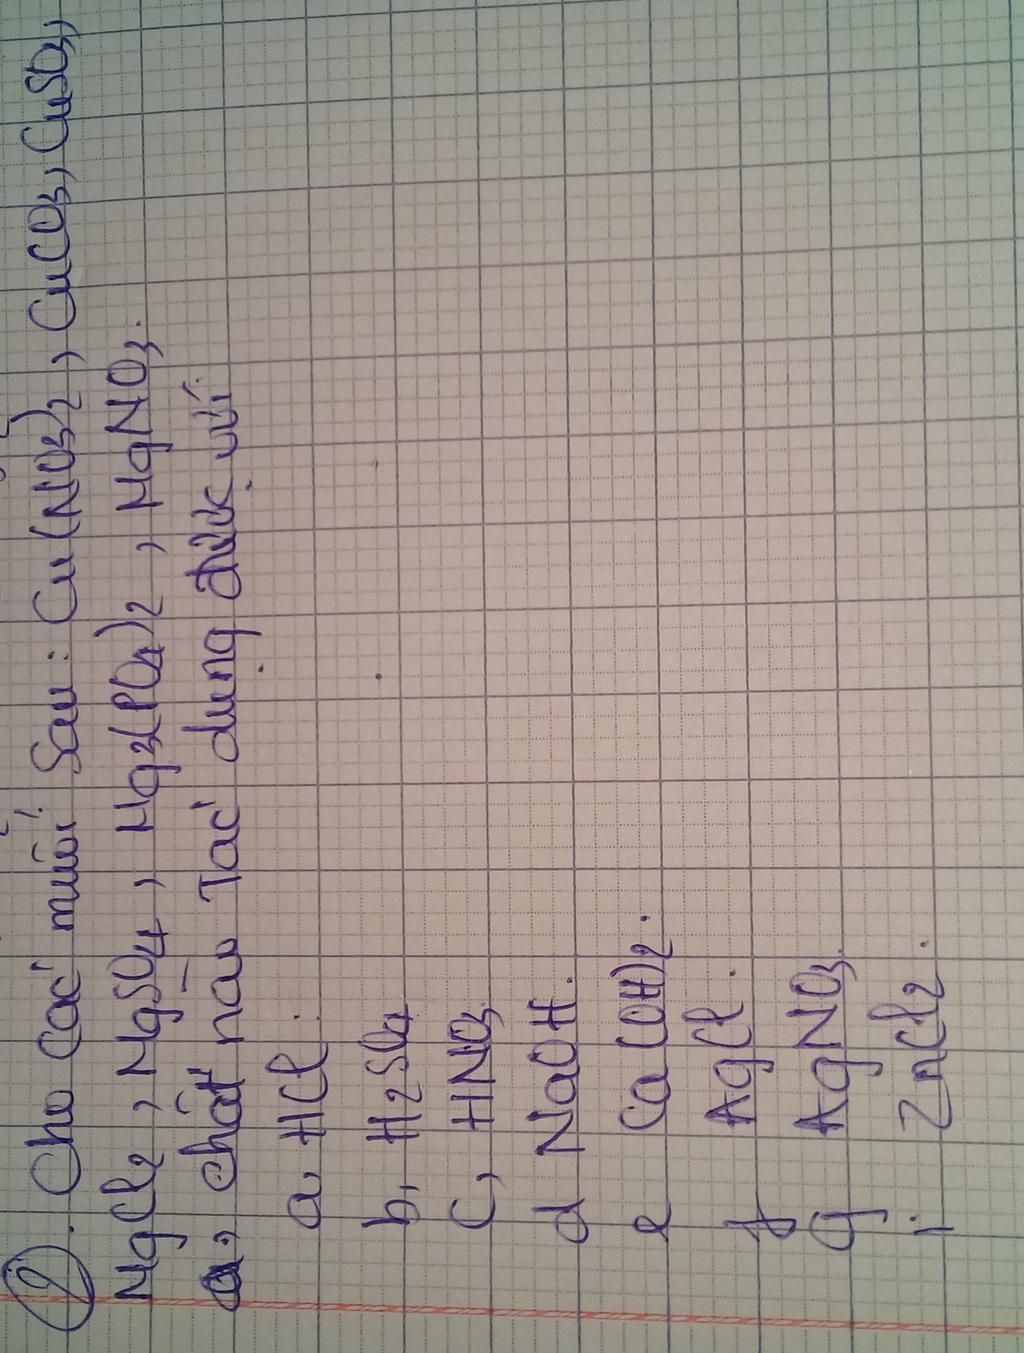 2. Cho các muối sau: Cu(NO3)2, CuCO3, CuSO3,
MgCl2, MgSO4, Mg3(PO4)2, MgNO3.
a, chất nào Tác dụng được với
a, HCl.
b, H2SO4
c, HNO3
d NaOH.
e Ca(OH)2.
f AgCl.
g AgNO3.
i ZnCl2.